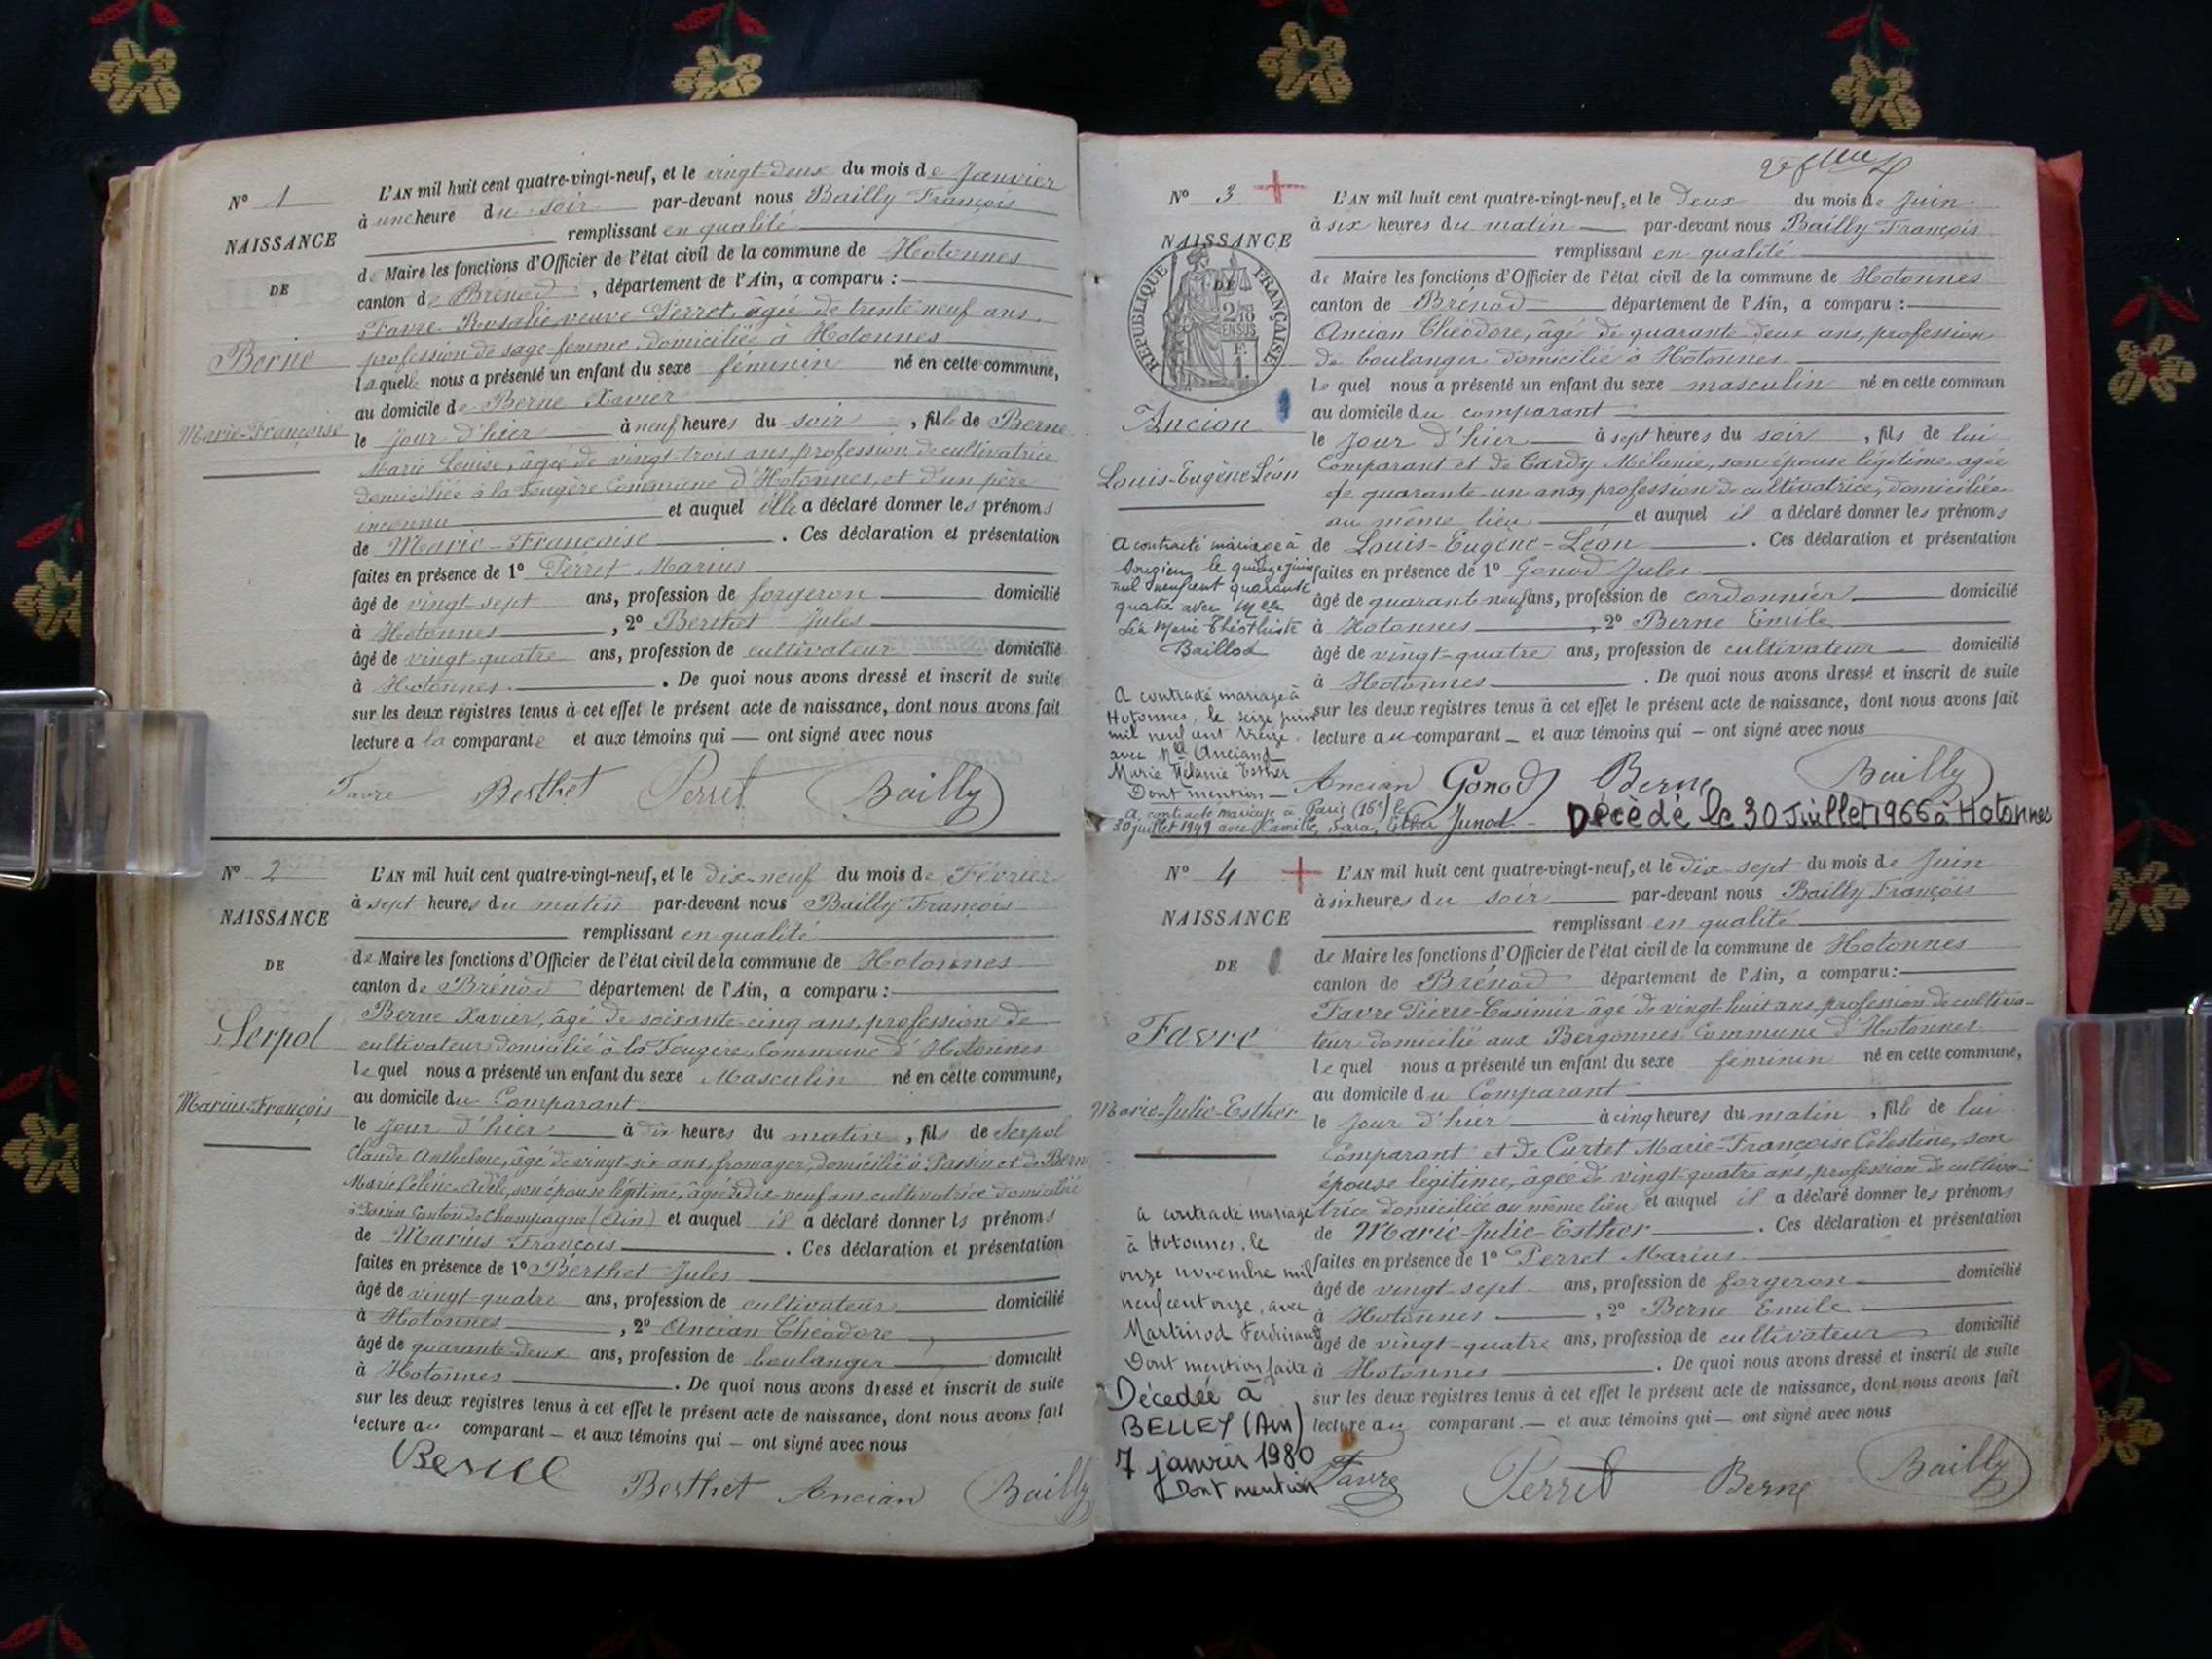 N° 1
NAISSANCE
DE
Berne
Marie-Françoise
L'AN mil huit cent quatre-vingt-neuf, et le vingt-deux du mois de Janvier
à une heure du soir par-devant nous Bailly François
remplissant en qualité
de Maire les fonctions d'Officier de l'état civil de la commune de Hotonnes
canton de Brénod, département de l'Ain, a comparu :
Favre Rosalie veuve Perret, âgée de trente neuf ans,
profession de sage-femme, domiciliée à Hotonnes
laquelle nous a présenté un enfant du sexe féminin né en cette commune,
au domicile de Berne Xavier
le jour d'hier à neuf heures du soir, fille de Berne
Marie Louise, âgée de vingt-trois ans, profession de cultivatrice
domiciliée à la Fougère Commune d'Hotonnes, et d'un père
inconnu et auquel elle a déclaré donner les prénoms
de Marie-Françoise. Ces déclaration et présentation
faites en présence de 1° Perret Marius
âgé de vingt-sept ans, profession de forgeron domicilié
à Hotonnes, 2° Berthet Jules
âgé de vingt-quatre ans, profession de cultivateur domicilié
à Hotonnes. De quoi nous avons dressé et inscrit de suite
sur les deux registres tenus à cet effet le présent acte de naissance, dont nous avons fait
lecture a la comparante et aux témoins qui — ont signé avec nous
Favre Berthet Perret Bailly
N° 2
NAISSANCE
DE
Serpol
Marius-François
L'AN mil huit cent quatre-vingt-neuf, et le dix-neuf du mois de Février
à sept heures du matin par-devant nous Bailly François
remplissant en qualité
de Maire les fonctions d'Officier de l'état civil de la commune de Hotonnes
canton de Brénod département de l'Ain, a comparu :
Berne Xavier, âgé de soixante-cinq ans, profession de
cultivateur domicilié à la Fougère, Commune d'Hotonnes
lequel nous a présenté un enfant du sexe Masculin né en cette commune,
au domicile du Comparant
le jour d'hier à dix heures du matin, fils de Serpol
Claude Anthelme, âgé de vingt-six ans, fromager, domicilié à Passin et de Berne
Marie Adèle, son épouse légitime, âgée de dix-neuf ans, cultivatrice domiciliée
à Passin Canton de Champagne (Ain) et auquel il a déclaré donner ls prénoms
de Marius François. Ces déclaration et présentation
faites en présence de 1° Berthet Jules
âgé de vingt-quatre ans, profession de cultivateur domicilié
à Hotonnes, 2° Ancian Théodore
âgé de quarante-deux ans, profession de boulanger domicilié
à Hotonnes. De quoi nous avons dressé et inscrit de suite
sur les deux registres tenus à cet effet le présent acte de naissance, dont nous avons fait
lecture au comparant — et aux témoins qui — ont signé avec nous
Berne
Berthet Ancian Bailly
N° 3
NAISSANCE
DE
RÉPUBLIQUE FRANÇAISE
Ancian
Louis-Eugène-Léon
L'AN mil huit cent quatre-vingt-neuf, et le deux du mois de Juin
à six heures du matin par-devant nous Bailly François
remplissant en qualité
de Maire les fonctions d'Officier de l'état civil de la commune de Hotonnes
canton de Brénod département de l'Ain, a comparu :
Ancian Théodore, âgé de quarante deux ans, profession
de boulanger domicilié à Hotonnes
lequel nous a présenté un enfant du sexe masculin né en cette commun
au domicile du comparant
le jour d'hier à sept heures du soir, fils de lui
Comparant et de Cardy Mélanie, son épouse légitime âgée
de quarante-un ans, profession de cultivatrice, domiciliée
au même lieu et auquel il a déclaré donner les prénoms
de Louis-Eugène-Léon. Ces déclaration et présentation
faites en présence de 1° Gonod Jules
âgé de quarante neuf ans, profession de cordonnier domicilié
à Hotonnes, 2° Berne Emile
âgé de vingt-quatre ans, profession de cultivateur domicilié
à Hotonnes. De quoi nous avons dressé et inscrit de suite
sur les deux registres tenus à cet effet le présent acte de naissance, dont nous avons fait
lecture au comparant — et aux témoins qui — ont signé avec nous
Ancian Gonod Berne Bailly
A contracté mariage à
Songieu le quinze juin
mil neuf cent quarante
quatre avec Melle
Léa Marie Théothiste
Baillod
A contracté mariage à
Hotonnes, le seize juin
mil neuf cent treize
avec Mlle Anciand
Marie Mélanie Esther
Dont mention
A contracté mariage à Paris (16e) le
30 juillet 1949 avec Camille, Sara, Esther Junod
Décédé le 30 Juillet 1966 à Hotonnes
N° 4
NAISSANCE
DE
Favre
Marie-Julie-Esther
L'AN mil huit cent quatre-vingt-neuf, et le dix sept du mois de Juin
à six heures du soir par-devant nous Bailly François
remplissant en qualité
de Maire les fonctions d'Officier de l'état civil de la commune de Hotonnes
canton de Brénod département de l'Ain, a comparu :
Favre Pierre-Casimir âgé de vingt-huit ans, profession de cultiva-
teur domicilié aux Bergonnes Commune d'Hotonnes
lequel nous a présenté un enfant du sexe féminin né en cette commune,
au domicile du Comparant
le jour d'hier à cinq heures du matin, fille de lui
Comparant et de Curtet Marie-Françoise Célestine, son
épouse légitime, âgée de vingt-quatre ans, profession de cultiva-
trice domiciliée au même lieu et auquel il a déclaré donner les prénoms
de Marie-Julie-Esther. Ces déclaration et présentation
faites en présence de 1° Perret Marius
âgé de vingt-sept ans, profession de forgeron domicilié
à Hotonnes, 2° Berne Emile
âgé de vingt-quatre ans, profession de cultivateur domicilié
à Hotonnes. De quoi nous avons dressé et inscrit de suite
sur les deux registres tenus à cet effet le présent acte de naissance, dont nous avons fait
lecture au comparant — et aux témoins qui — ont signé avec nous
Favre Perret Berne Bailly
A contracté mariage
à Hotonnes, le
onze novembre mil
neuf cent onze, avec
Martinod Ferdinand
Dont mention faite
Décédée à
BELLEY (Ain)
7 janvier 1980
Dont mention